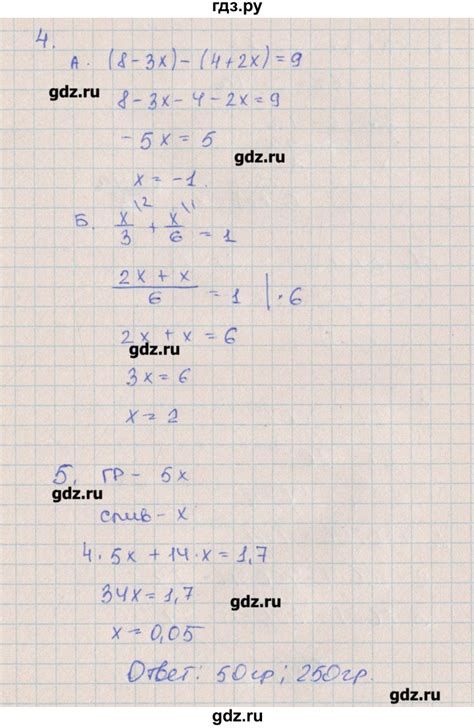 гдз.ру
4.
А. (8-3x)-(4+2x)=9
gdz.ru
8-3x-4-2x=9
-5x=5
gdz.ru
x=-1.
Б. x/3 \2 + x/6 \1 = 1
(2x+x)/6 = 1 |·6
2x+x=6
gdz.ru
3x=6
x=2
5. гр- 5x
gdz.ru
слив-x
4·5x+14·x=1,7
34x=1,7
gdz.ru
x=0,05
Ответ: 50гр; 250гр.
gdz.ru